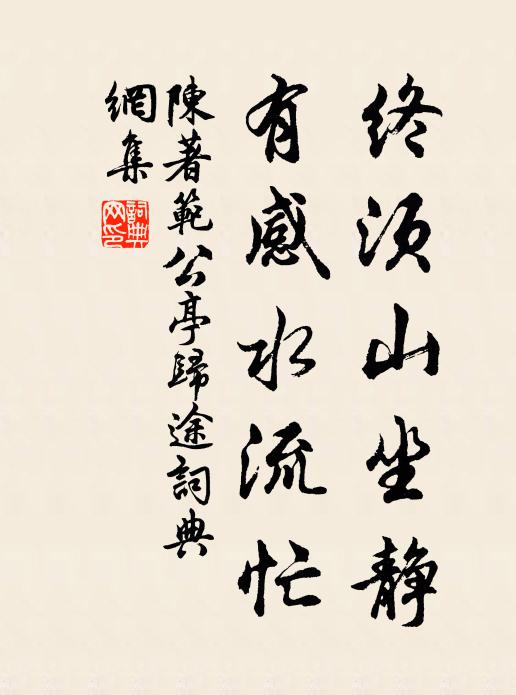 终须山坐静
有感水流忙
陳著範公亭歸途詞典
網集
詞典
网印